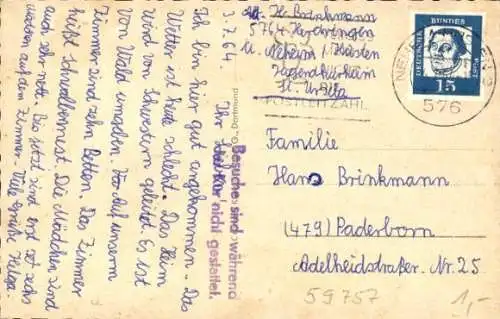 3.7.64.
Ich bin hier gut angekommen. Das
Wetter ist heute schlecht. Das Heim
wird von Schwestern geleitet. Es ist
von Wald umgeben. Hier auf unserm
Zimmer sind zehn Betten. Das Zimmer
heißt Schwalbennest. Die Mädchen sind
auch sehr nett. Bis jetzt sind erst sechs
auf dem Zimmer. Viele Grüße Helga.
Besuche sind während
der Kur nicht gestattet.
Dortmund
H. Brinkmann
5764 Herdringen
ü. Neheim-Hüsten
Jugendkurheim
St. Ursula
DEUTSCHE BUNDESPOST
15
576
POSTLEITZAHL
Familie
Hans Brinkmann
(479) Paderborn
Adelheidstraßer. Nr. 25
59757
1,-